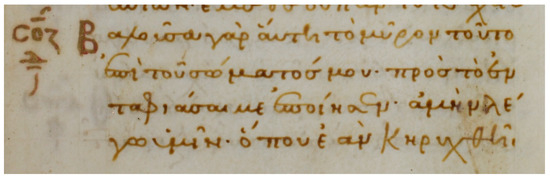 Βαλοῦσα γὰρ αὕτη τὸ μῦρον τοῦτο
ἐπὶ τοῦ σώματός μου· πρὸς τὸ ἐν
ταφιάσαι με ἐποίησεν· ἀμὴν λέ
γω ὑμῖν· ὅπου ἐὰν κηρυχθῆι